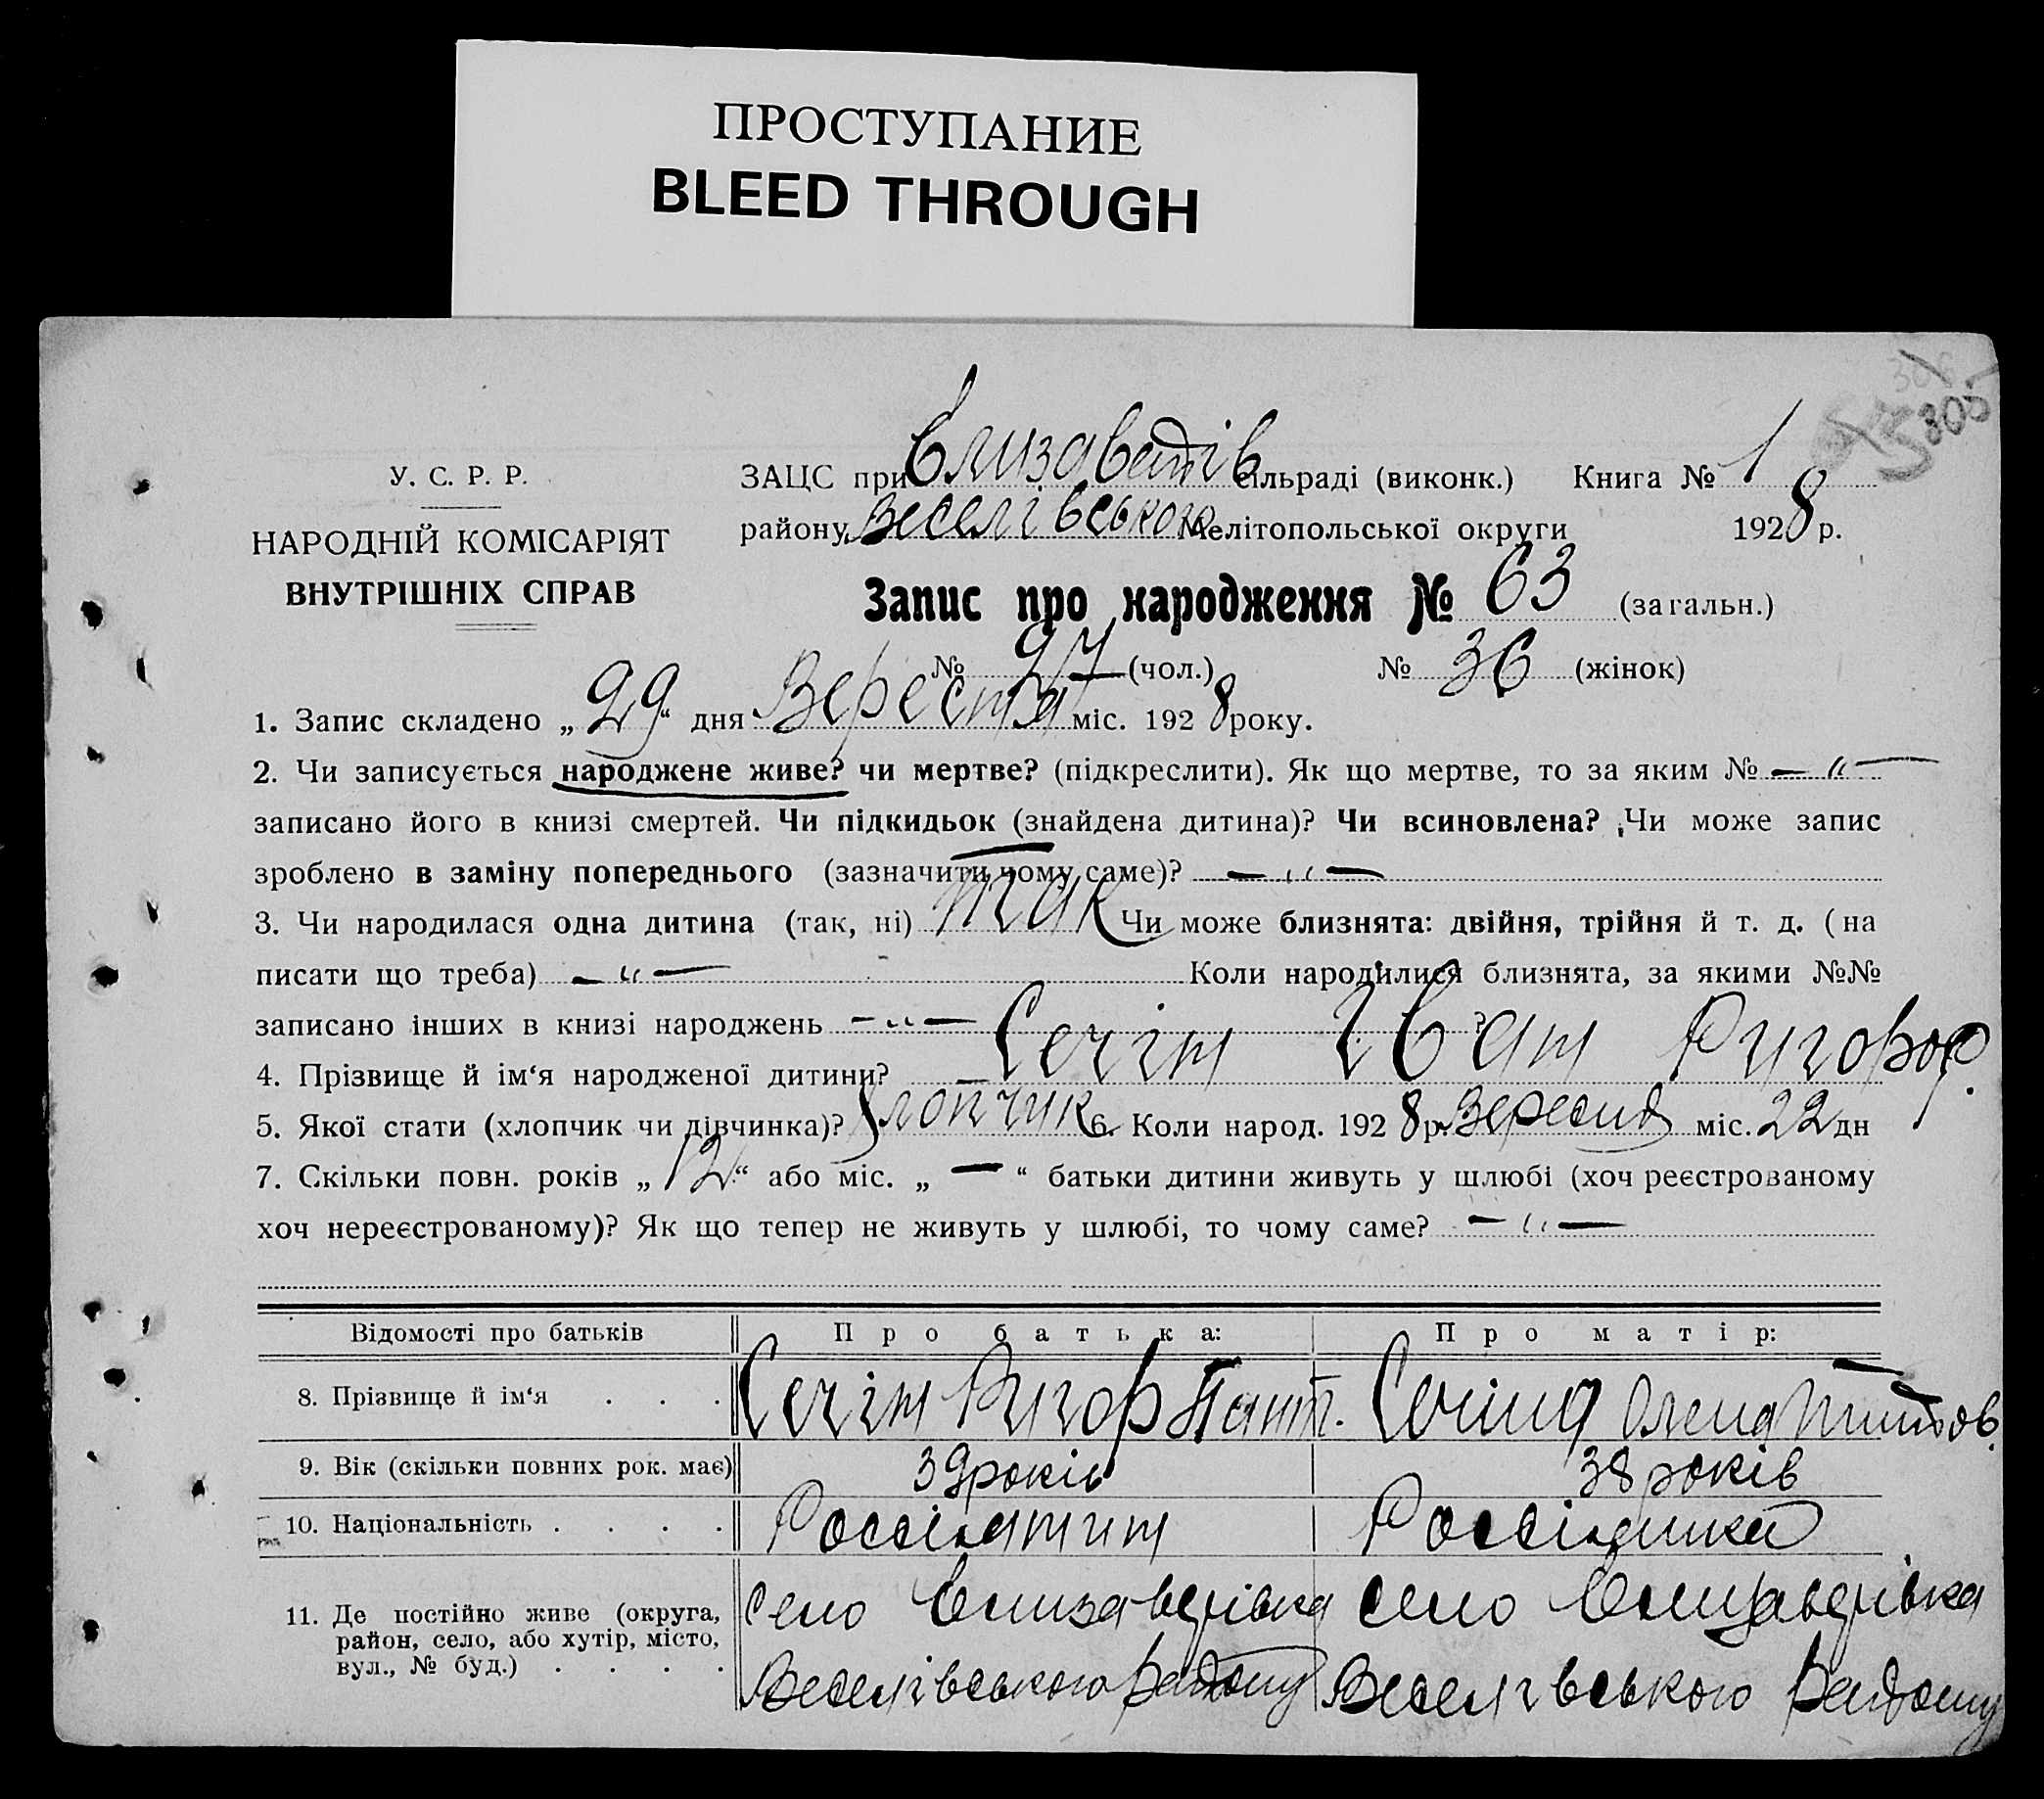 ПРОСТУПАНИЕ
BLEED THROUGH
305
У. С. Р. Р.
НАРОДНІЙ КОМІСАРІЯТ
ВНУТРІШНІХ СПРАВ
ЗАЦС при Єлизаветів сільраді (виконк.) Книга № 1
району Веселівського Мелітопольської округи 1928 р.
Запис про народження № 63 (загальн.)
№ 27 (чол.) № 36 (жінок)
1. Запис складено „ 29 “ дня Вересня міс. 1928 року.
2. Чи записується народжене живе? чи мертве? (підкреслити). Як що мертве, то за яким № — „ —
записано його в книзі смертей. Чи підкидьок (знайдена дитина)? Чи всиновлена? Чи може запис
зроблено в заміну попереднього (зазначити чому саме)? — „ —
3. Чи народилася одна дитина (так, ні) так Чи може близнята: двійня, трійня й т. д. (на
писати що треба) — „ — Коли народилися близнята, за якими №№
записано інших в книзі народжень — „ — ?
4. Прізвище й ім‘я народженої дитини? Сечін Іван Ригоров.
5. Якої стати (хлопчик чи дівчинка)? Хлопчик 6. Коли народ. 1928 р. Вересня міс. 22 дн
7. Скільки повн. років „ 12 “ або міс. „ — “ батьки дитини живуть у шлюбі (хоч реєстрованому
хоч нереєстрованому)? Як що тепер не живуть у шлюбі, то чому саме? — „ —
Відомості про батьків Про батька: Про матір:
8. Прізвище й ім‘я . . . Сечін Ригор Пант. Сечіна Олена Титов.
9. Вік (скільки повних рок. має) 39 років 38 років
10. Національність . . . . Россіянин Россіянка
11. Де постійно живе (округа, район, село, або хутір, місто, вул., № буд.) . . . .
село Єлизаветівка село Єлизаветівка
Веселівського району Веселівського району